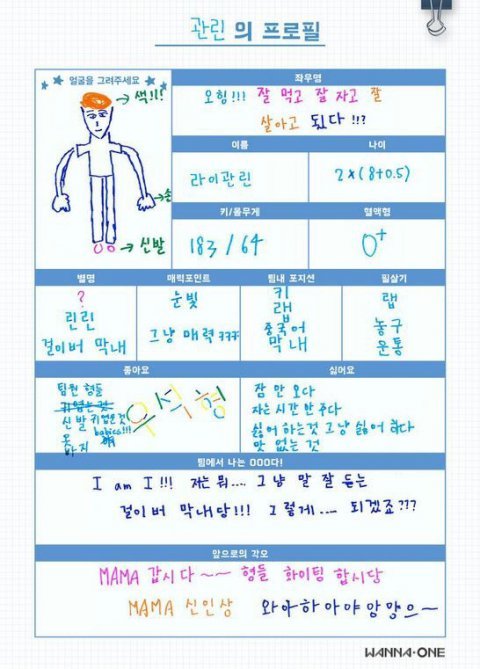 관린의 프로필
얼굴을 그려주세요
색!!!
손
신발
좌우명
오힝!!! 잘 먹고 잠 자고 잘
살아고 됬다 !!?
이름
나이
라이관린
2×(8+0.5)
키/몸무게
혈액형
183 / 64
O+
별명
매력포인트
팀내 포지션
필살기
?
린린
걸이버 막내
눈빛
그냥 매력 ㅋㅋㅋ
키
랩
중국어
막내
랩
농구
운통
좋아요
싫어요
팀원 형들
신발 귀엽은것
옷 babies!!!
바지
우석형
잠 안 오다
자는 시간 안 주다
싫어 하는것 그냥 싫어 하다
맛 없는 것
팀에서 나는 OOO다!
I am I !!! 저는 뭐.... 그냥 말 잘 듣는
걸이버 막내당!!! 그렇게.... 되겠죠???
앞으로의 각오
MAMA 갑시다~~ 형들 화이팅 합시당
MAMA 신인상 와아하아야앙망으~
WANNA·ONE